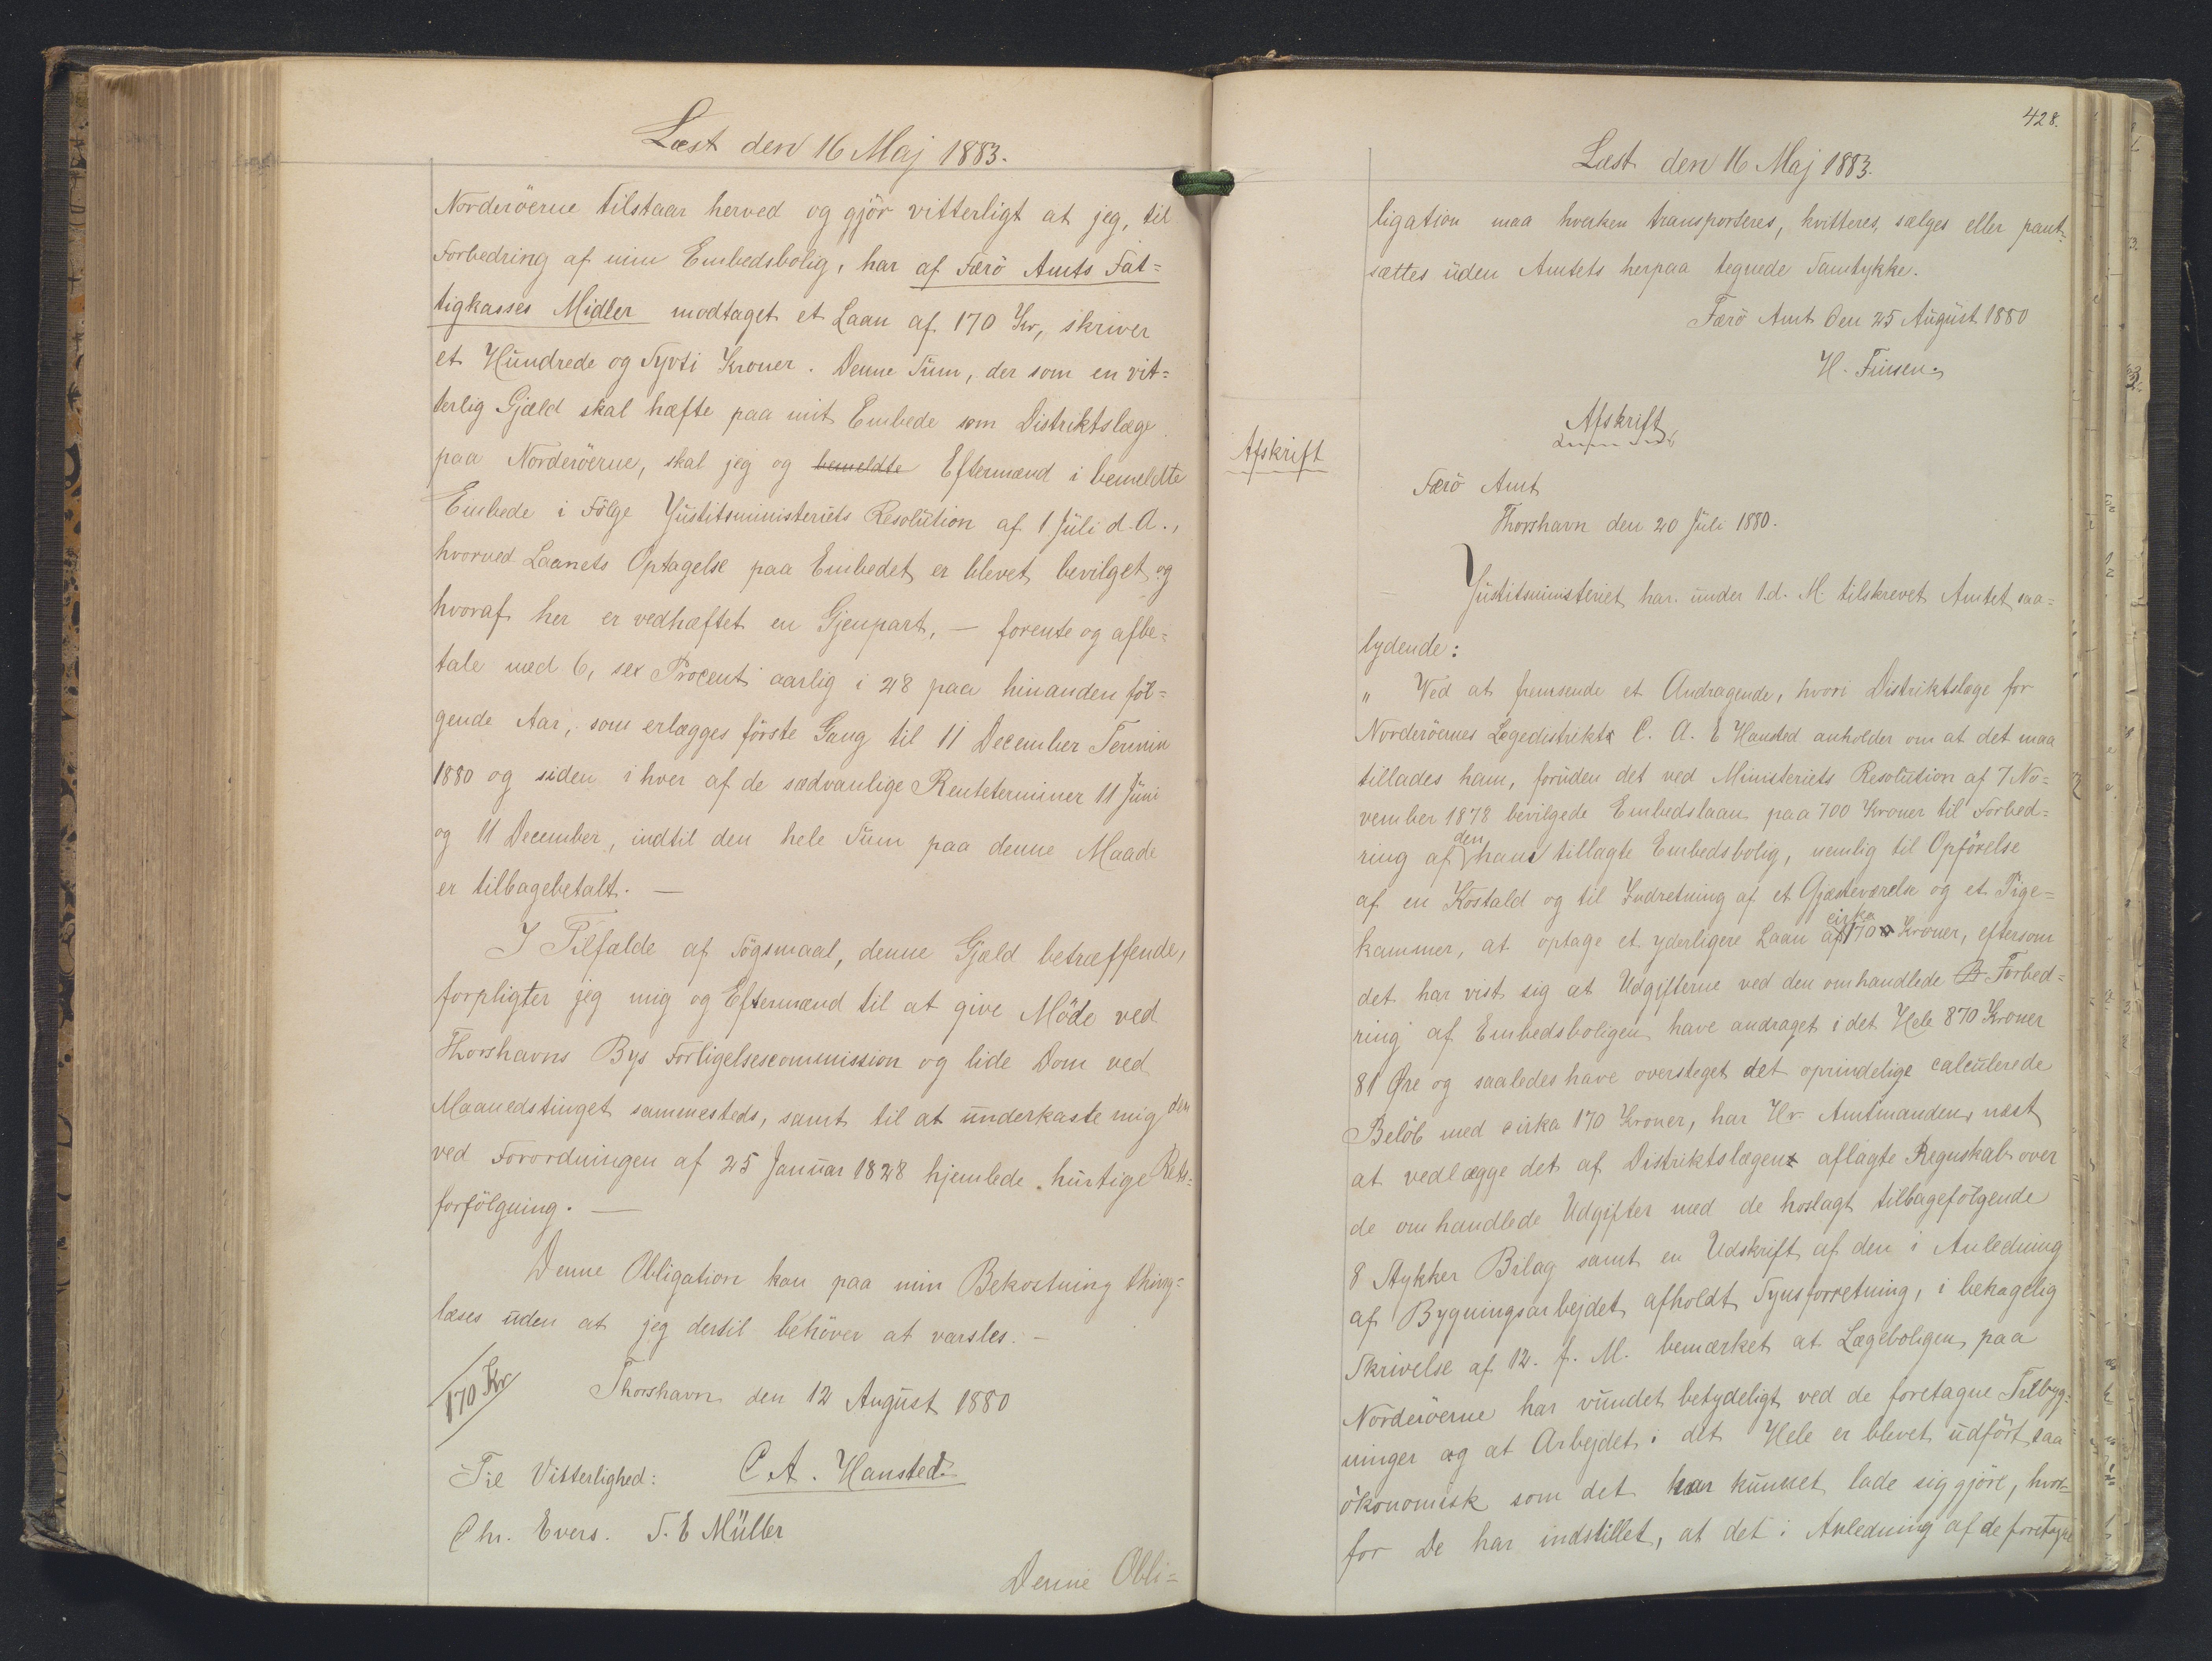 Læst den 16 Maj 1883.
Norderöerne tilstaar herved og gjör vitterligt at jeg, til
Forbedring af min Embedsbolig, har af Færö Amts Fat=
tigkasses Midler modtaget et Laan af 170 Kr, skriver
et Hundrede og Syvti Kroner. Denne Sum, der som en vit=
terlig Gjæld skal hæfte paa mit Embede som Distriktslæge
paa Norderöerne, skal jeg og bemeldte Eftermænd i bemeldte
Embede i Fölge Justitsministeriets Resolution af 1 Juli d.A.,
hvorved Laanets Optagelse paa Embedet er blevet bevilget og
hvoraf her er vedhæftet en Gjenpart, — forente og afbe=
tale med 6, sex Procent aarlig i 28 paa hinanden föl=
gende Aar, som erlægges förste Gang til 11 December Termin
1880 og siden i hver af de sædvanlige Renteterminer 11 Juni
og 11 December, indtil den hele Sum paa denne Maade
er tilbagebetalt. —
I Tilfælde af Sögsmaal, denne Gjæld betræffende,
forpligter jeg mig og Eftermænd til at give Möde ved
Thorshavns Bys Forligelsescommission og lide Dom ved
Maanedstinget sammesteds, samt til at underkaste mig den
ved Forordningen af 25 Januar 1828 hjemlede hurtige Rets=
forfölgning. —
Denne Obligation kan paa min Bekostning thing=
læses uden at jeg dertil behöver at varsles. —
170 Kr
Thorshavn den 12 August 1880
Til Vitterlighed: C.A. Hansted
Chr. Evers. S. E Müller
Denne Obli=
428.
Læst den 16 Maj 1883.
ligation maa hverken transporteres, kvitteres, sælges eller pant=
sættes uden Amtets herpaa tegnede Samtykke.
Færö Amt den 25 August 1880
H. Finsen.
Afskrift
Afskrift
Færö Amt
Thorshavn den 20 Juli 1880.
Justitsministeriet har under 1.d. M. tilskrevet Amtet saa=
lydende:
" Ved at fremsende et Andragende, hvori Distriktslæge for
Norderöernes Lægedistrikt C. A. E Hansted anholder om at det maa
tillades ham, foruden det ved Ministeriets Resolution af 7 No=
vember 1878 bevilgede Embedslaan paa 700 Kroner til Forbed=
ring af den ham tillagte Embedsbolig, nemlig til Opförelse
af en Kostald og til Indretning af et Gjæsteværelse og et Pige=
kammer, at optage et yderligere Laan af cirka 170 Kroner, eftersom
det har vist sig at Udgifterne ved den omhandlede Forbed=
ring af Embedsboligen have andraget i det Hele 870 Kroner
81 Øre og saaledes have oversteget det oprindelige calculerede
Belöb med cirka 170 Kroner, har Hr. Amtmanden, næst
at vedlægge det af Distriktslægen aflagte Regnskab over
de omhandlede Udgifter med de hoslagt tilbagefölgende
8 Stykker Bilag samt en Udskrift af den i Anledning
af Bygningsarbejdet afholdt Synsforretning, i behagelig
Skrivelse af 12. f. M. bemærket at Lægeboligen paa
Norderöerne har vundet betydeligt ved de foretagne Tilbyg=
ninger og at Arbejdet i det Hele er blevet udfört saa
ökonomisk som det har kunnet lade sig gjöre, hvor=
for De har indstillet, at det i Anledning af de foretagne